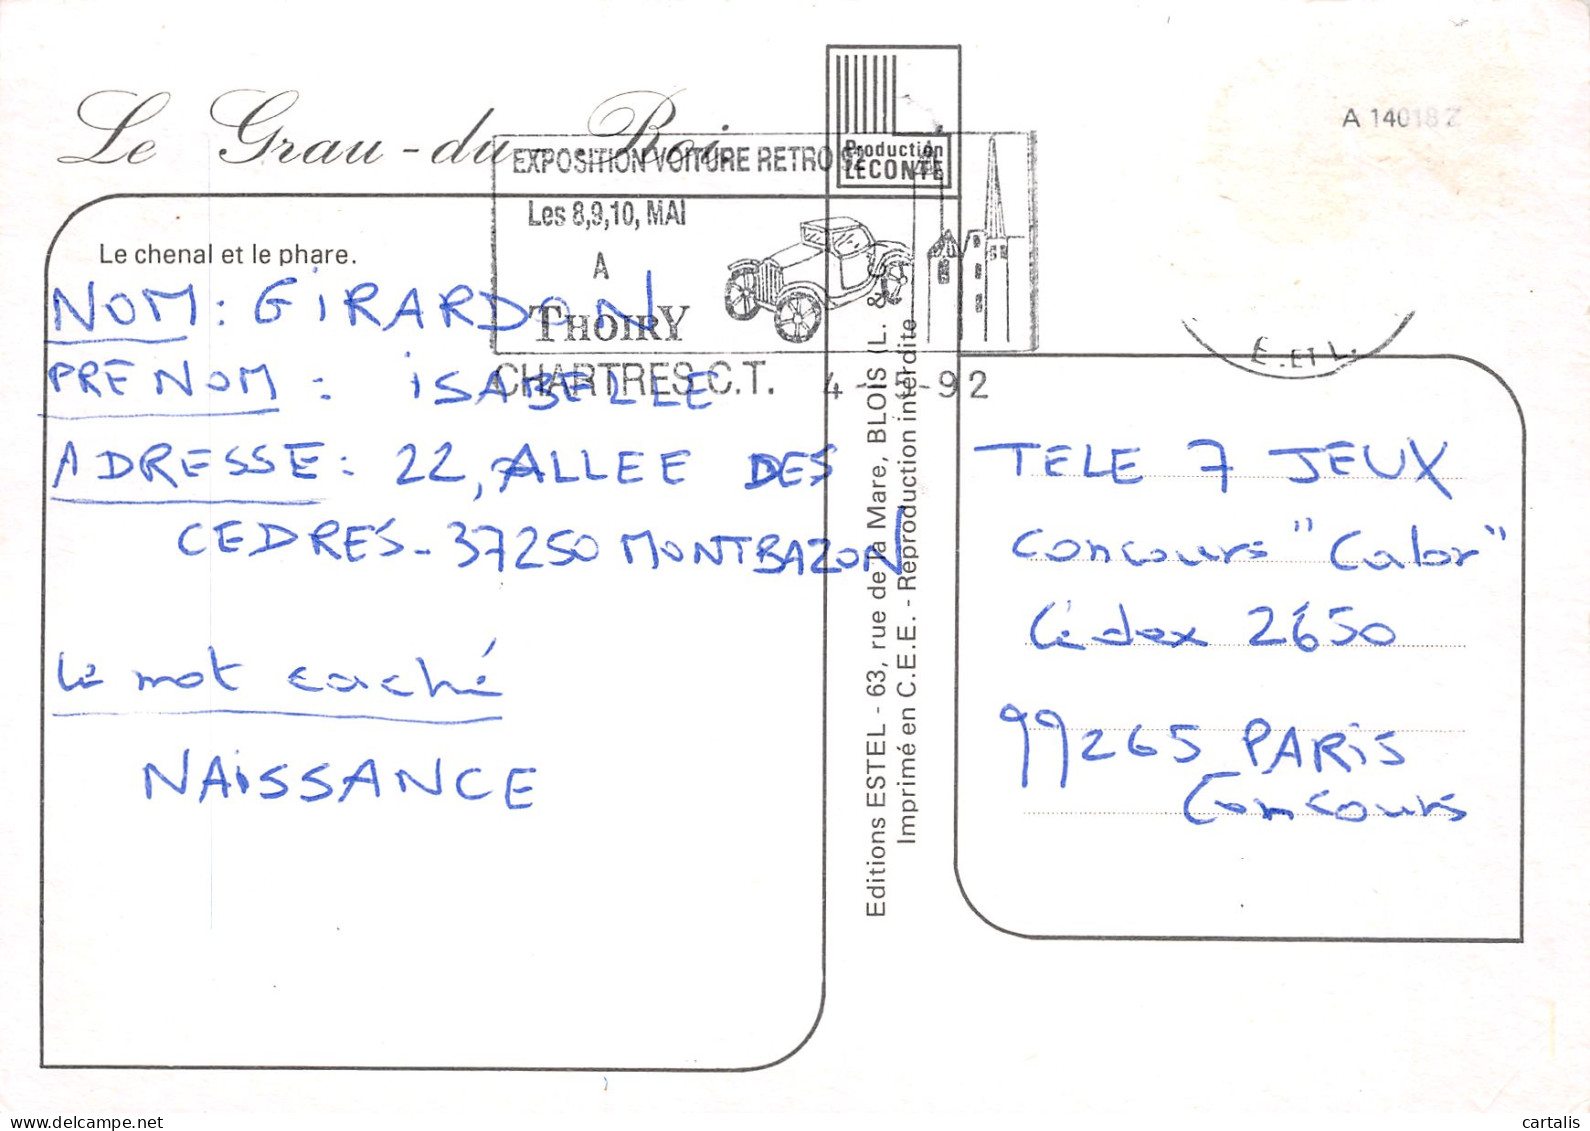 Le Grau-du-Roi.
Production
LECONTE
A 14018 Z
EXPOSITION VOITURE RETRO 92
Les 8,9,10, MAI
A
THOIRY
CHARTRES C.T.
-92
E. ET L.
Le chenal et le phare.
NOM : GIRARDON
PRENOM : ISABELLE
ADRESSE : 22, ALLEE DES
CEDRES - 37250 MONTBAZON
Le mot caché
NAISSANCE
Editions ESTEL - 63, rue de la Mare, BLOIS (L. &
Imprimé en C.E.E. - Reproduction interdite
TELE 7 JEUX
Concours "Calor"
Cédex 2650
99265 PARIS
Concours
cartalis